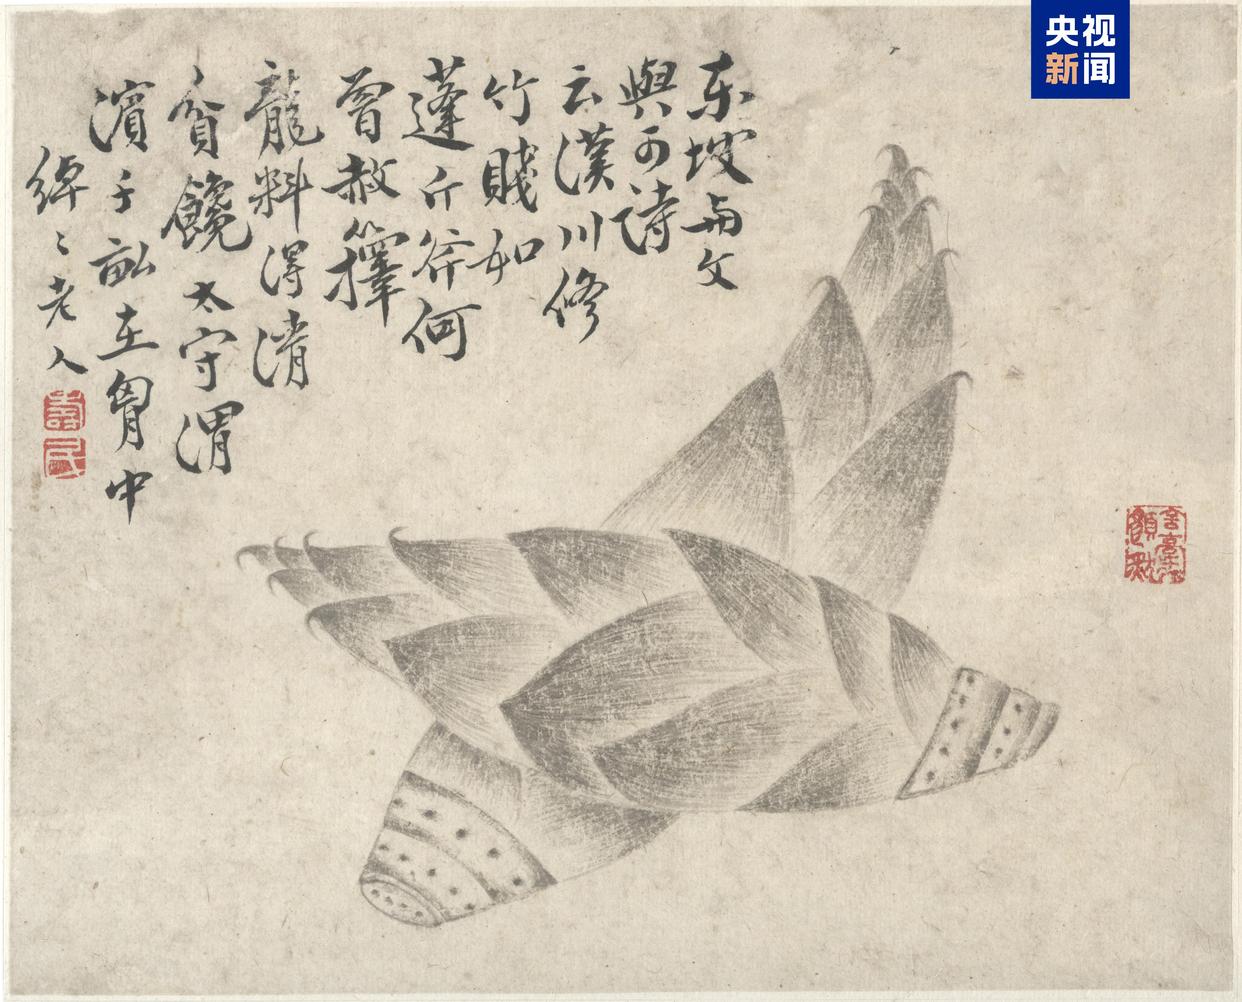 央视
新闻
东坡与文
與可詩
云漢川修
竹賤如
蓬斤斧何
曾赦籜
龍料得清
貧饞太守渭
濱千畝在胷中
綽〻老人
壽民